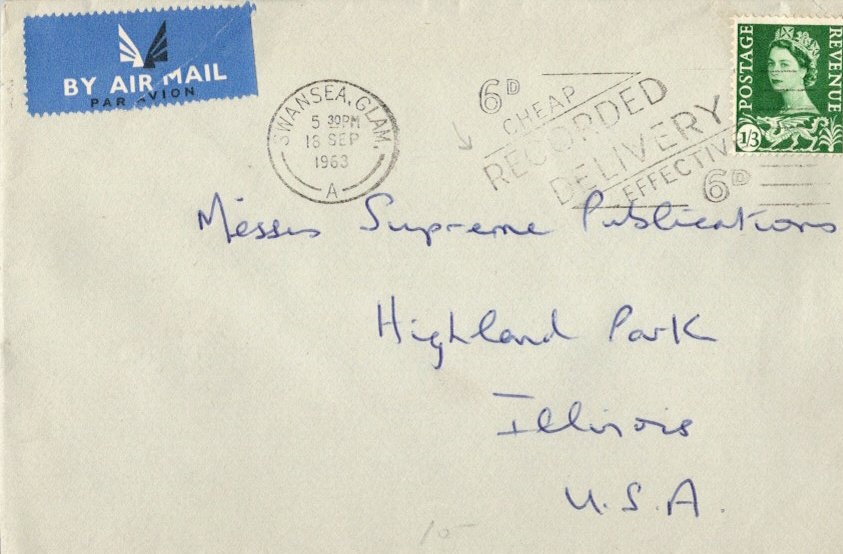 BY AIR MAIL
PAR AVION
SWANSEA, GLAM.
5 30PM
16 SEP
1963
A
6D
CHEAP
RECORDED
DELIVERY
EFFECTIV
6D
POSTAGE
REVENUE
1/3
Messrs Supreme Publications
Highland Park
Illinois
U.S.A.
10-